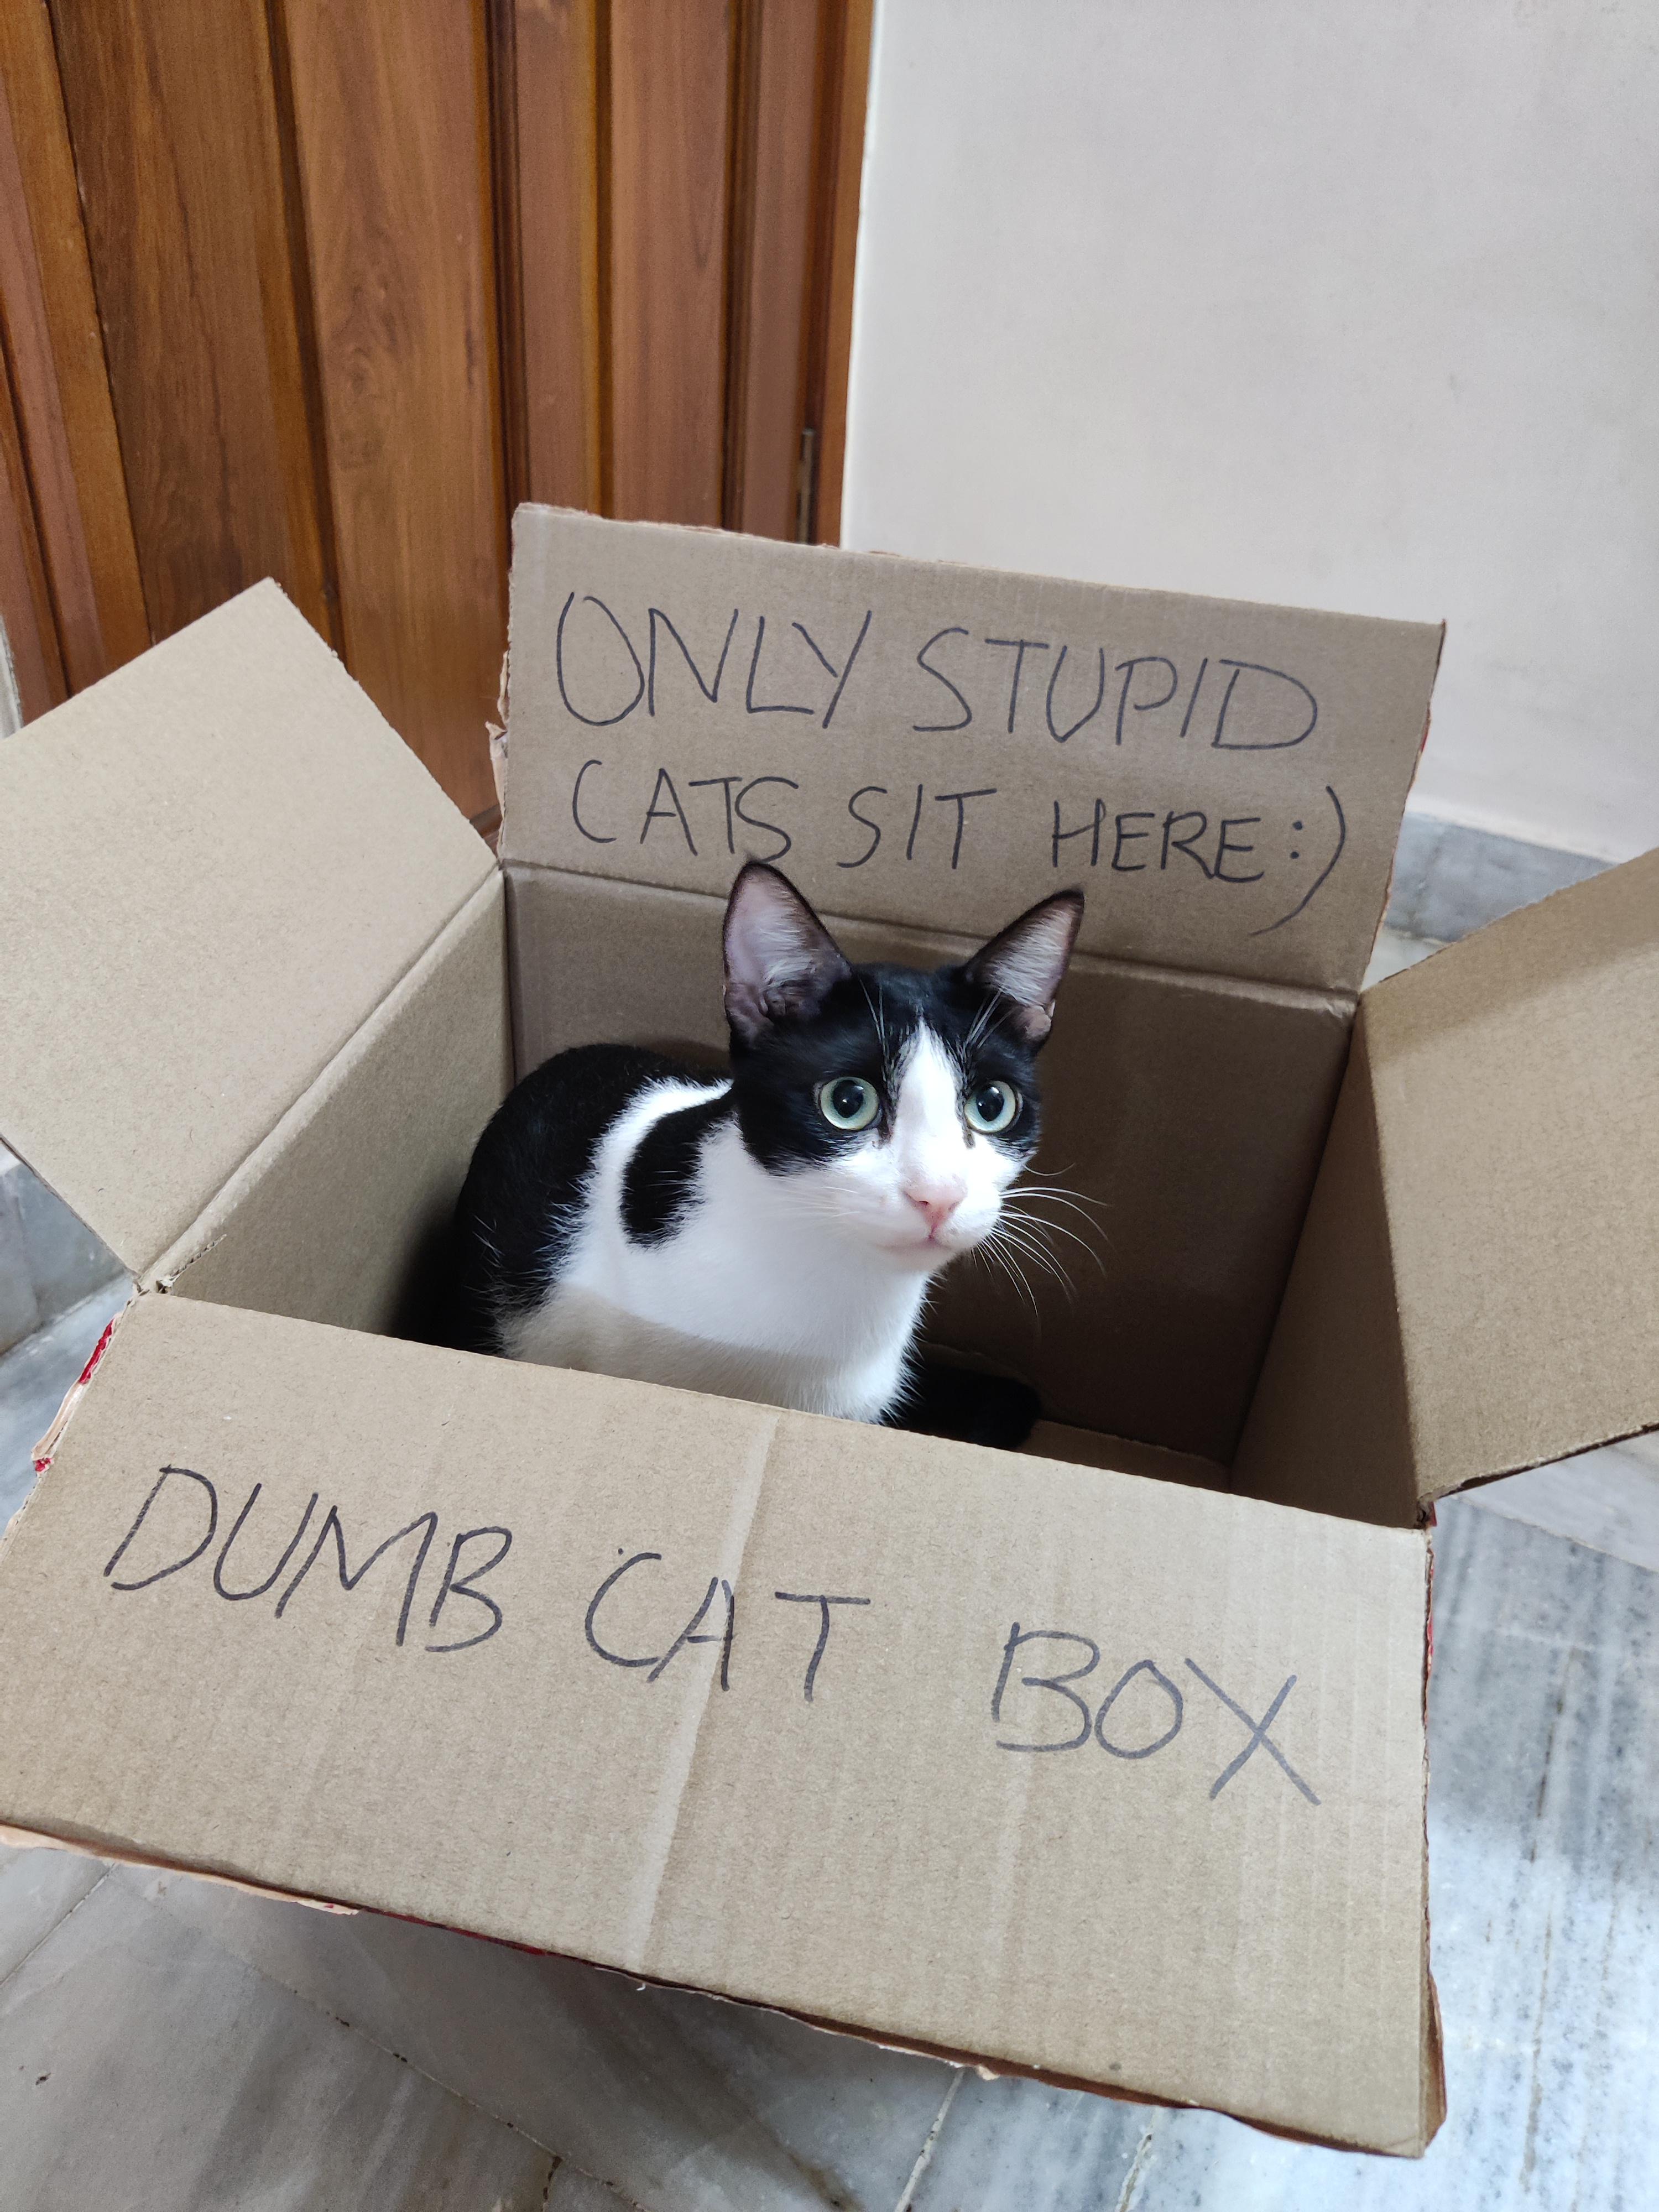 ONLY STUPID
CATS SIT HERE:)
DUMB CAT BOX